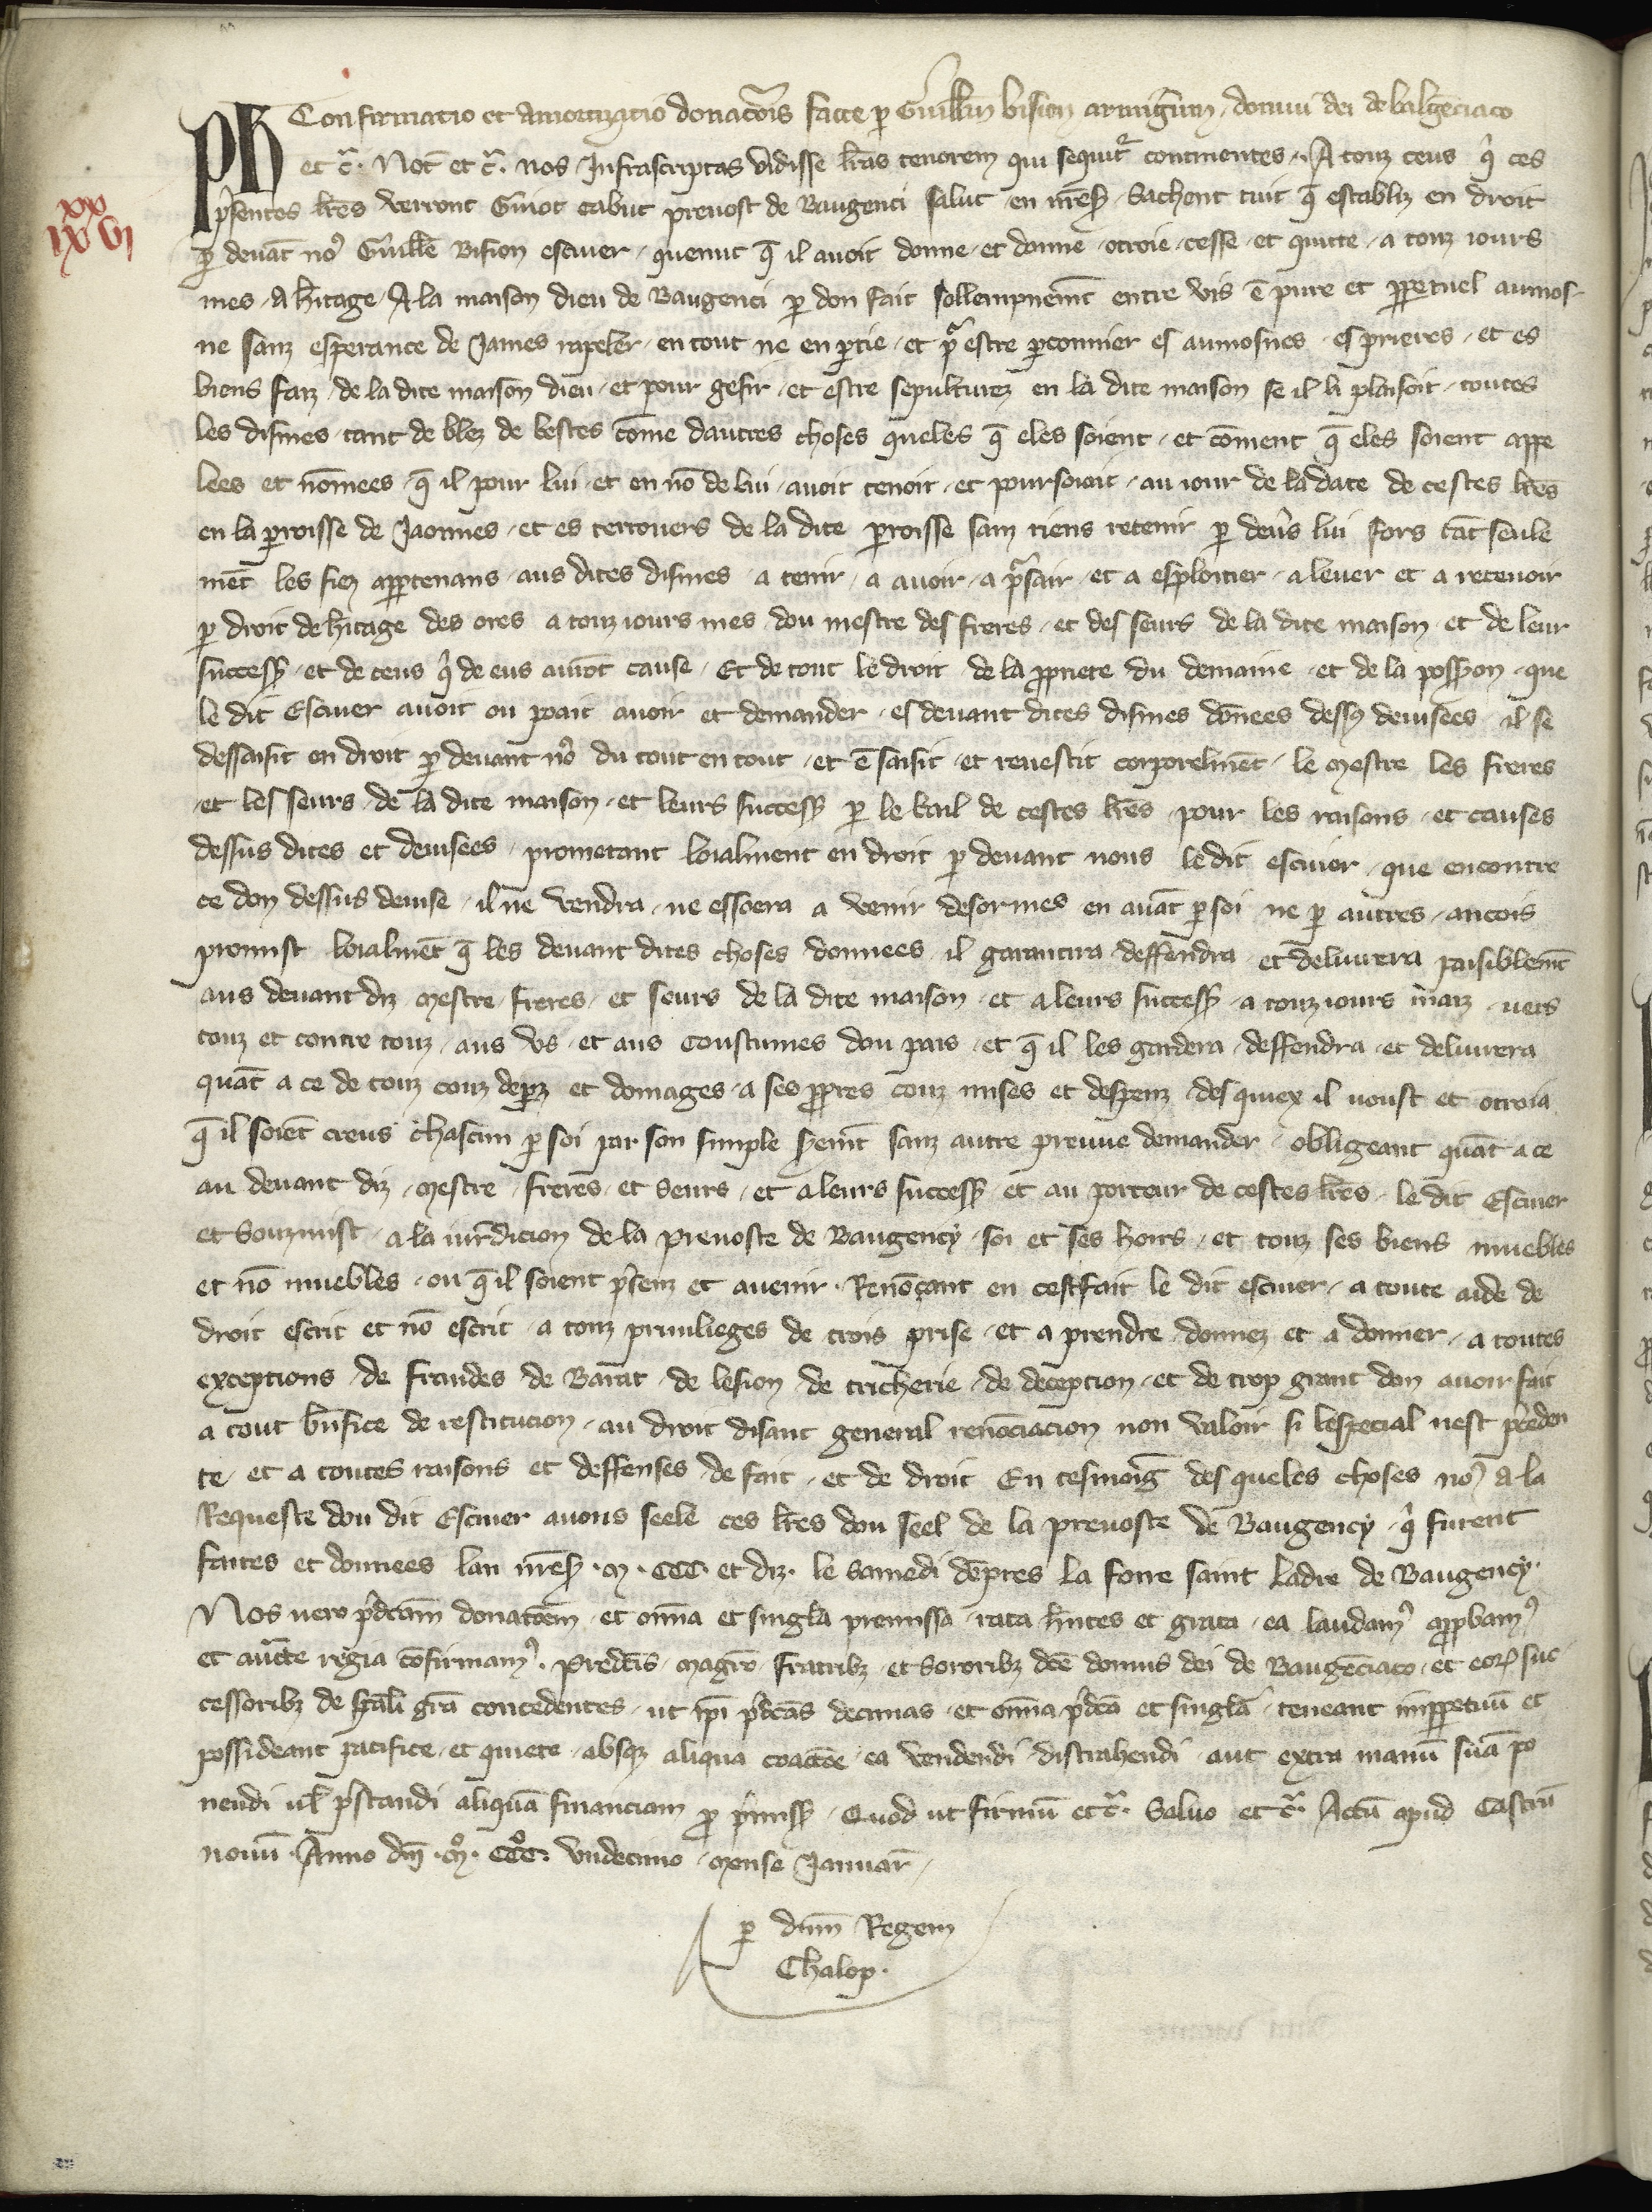 Confirmatio et amortizatio donac̄ois facte ꝑ Guill̄m bision armig̃um domui dei de balgenciaco
PH et c̃. Not̄ et c̃. nos Infrascriptas vidisse lr̄as tenorem qui sequit᷑ continentes. A touz ceus q̇ ces
p̃sentes lr̄es verront Guiot cabut prevost de Baugenci salut en nr̄e Sachent tuit q̄ establiz en droit
xx
IX XVI
ꝑ devāt noꝰ Guill̄e Bision escuier quenut q̄ il avoit donne et donne otroie cesse et quitte a touz iours
mes a h̃itage A la maison dieu de Baugenci ꝑ don fait sollempnem̄t entre vis ē pure et ꝑpetuel aumos-
ne sanz esperance de James rapeler en tout ne en ꝑtie et pᵃ estre ꝑconnier es aumosnes es prieres et es
biens faiz de la dite maison dieu et pour gesir et estre sepulturez en la dite maison se il li plaisoit toutes
les dismes tant de blez de bestes cōme dautres choses queles q̄ eles soient et cōment q̄ eles soient appe
lees et nōmees q̄ il pour lui et en nō de lui avoit tenoit et poursoioit au iour de la date de cestes lr̄es
en la ꝑroisse de Jaonnes et es terrouers de la dite ꝑroisse sanz riens retenir ꝑ dev̄s lui fors tāt seule
mēt les fiez apꝑtenans aus dites dismes a tenir a avoir a pᵃsair et a esploitier a lever et a retenoir
ꝑ droit de h̃itage des ores a touz iours mes dou mestre des freres et des seurs de la dite maison et de leur
success̃ et de ceus q̇ de eus aurōt cause Et de tout le droit de la ꝓpriete du demaine et de la poss̃ion que
le dit Escuier avoit ou poait avoir et demander es devant dites dismes dōnees dessꝰ devisees il se
dessaisit en droit ꝑ devant noꝰ du tout en tout et ē saisit et revestit corporelmēt le mestre les freres
et les seurs de la dite maison et leurs success̃ ꝑ le bail de cestes lr̄es pour les raisons et causes
dessus dites et devisees prometant loialment en droit ꝑ devant nous le dit escuier que encontre
ce don dessus devise il ne vendra ne essoera a venir desormes en avāt ꝑ soi ne ꝑ autres ancois
promist loialmēt q̄ les devant dites choses donnees il garantira deffendra et delivrera paisiblem̄t
aus devant diz mestre freres et seurs de la dite maison et a leurs success̃ a touz iours maiz vers
touz et contre touz aus vs et aus coustumes dou pais et q̄ il les gardera deffendra et delivrera
quāt a ce de touz couz dep̄z et domages a ses ꝓpres couz mises et despenz des quiex il voust et otroia
q̄ il soiēt creus chascun ꝑ soi par son simple s̃em̄t sanz autre preuve demander obligeant quāt a ce
au devant diz mestre freres et seurs et a leurs success̃ et au porteur de cestes lr̄es le dit Escuier
et souzmist a la iur̄dicion de la prevoste de Baugency soi et ses hoirs et touz ses biens muebles
et nō muebles ou q̄ il soient p̃senz et avenir Renōçant en cest fait le dit escuier a toute aide de
droit escrit et nō escrit a touz privilieges de crois prise et a prendre donnez et a donner a toutes
exceptions de fraudes de Barat de lesion de tricherie de deception et de trop grant don avoir fait
a tout bn̄fice de restitucion au droit disant general renōciacion non valoir si lespecial nest p̃ceden
te et a toutes raisons et deffenses de fait et de droit En tesmoig̃ des queles choses noꝰ a la
Requeste dou dit Escuier avons seele ces lr̄es dou seel de la prevoste de Baugency q̇ furent
faites et donnees lan nr̄e .M. CCC. et diz. le samedi dēpres la foire saint Ladre de Baugency.
Nos vero p̃dcām donac̄oem et om̄ia et singl̄a premissa rata h̃ntes et grata ea laudamꝰ apꝓbamꝰ
et auct̄te regia cōfirmamꝰ. Predc̄is magr̄o fratribꝫ et sororibꝫ dc̄e domus dei de Baugenciaco et eoꝝ suc
cessoribꝫ de sp̄ali gr̄a concedentes ut ip̄i p̃dcās decimas et om̄ia p̃dcā et singl̄a teneant imꝑpetuū et
possideant pacifice et quiete absqꝫ aliqua coactōe ea vendendi distrahendi aut extra manū suā po
nendi vl̄ p̃standi aliquā financiam ꝓ p̃miss̃ Quod ut firmū et c̃. Salvo et c̃. Actū apud Castrū
novū Anno dn̄i .Mº. CCCº. undecimo mense Januar̃
ꝑ dn̄m Regem
Chalop.